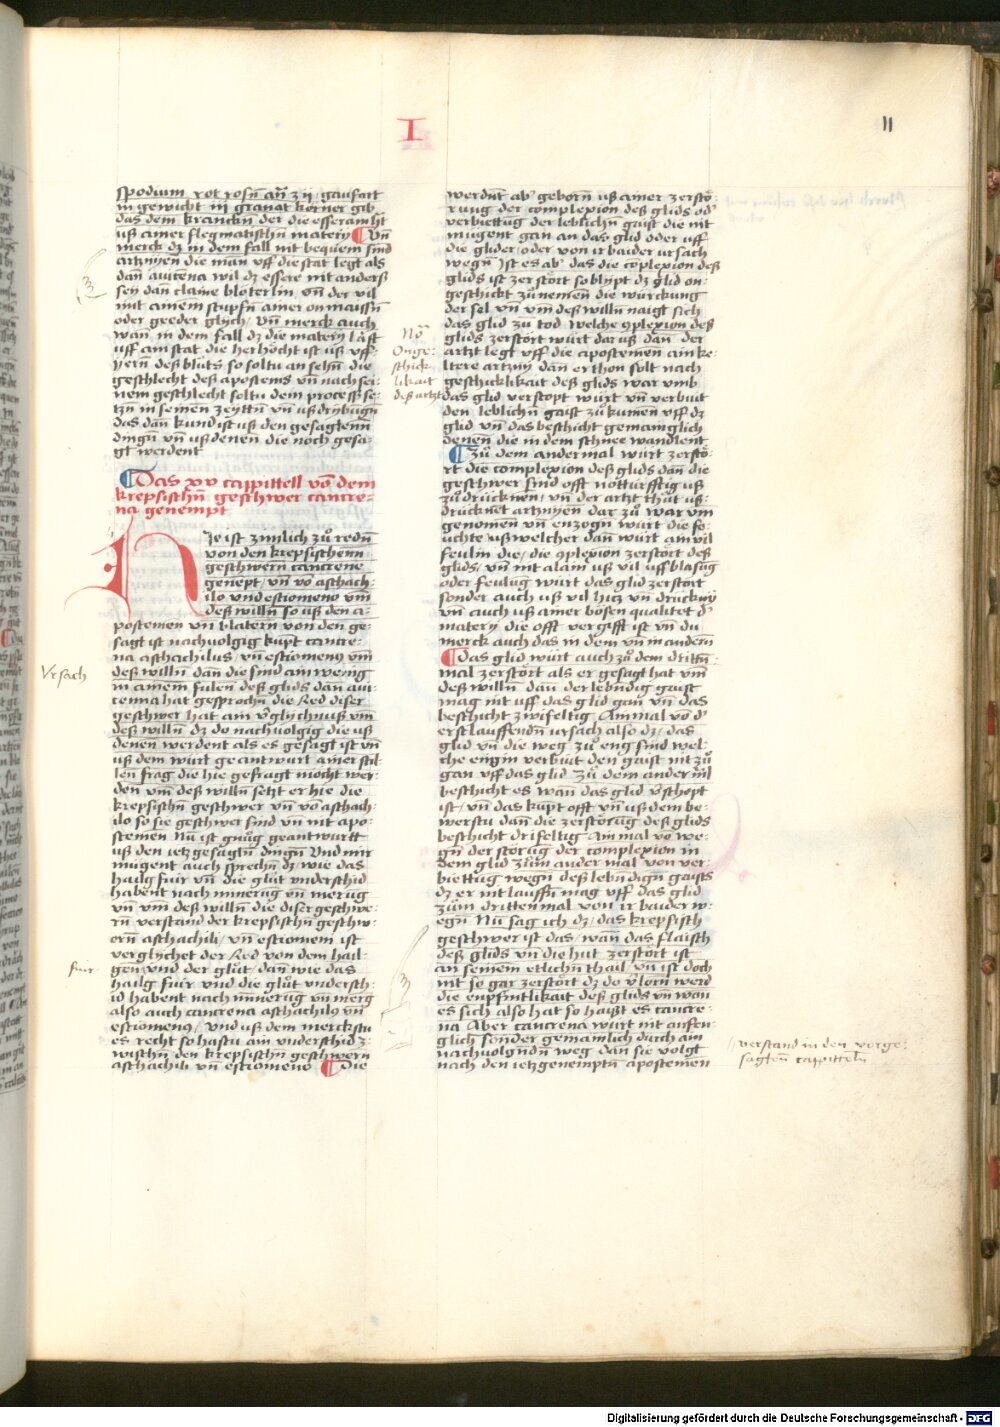 I
11
spodium rot rosn̄ an̄ ʒ ij gaufart
in gewicht iij granat körner gib
das dem kranckn̄ der die esseram h̄t
uß ainer flegmatischn̄ matery Vn̄
merck dz in dem fall nit bequem sind
artznyen die man uff die stat legt als
dan̄ auicena wil dz essere nit anderß
sey dan̄ claine blöterlin
mit ainem stupfn̄ ainer onmaissn̄
oder geeder glych vn̄ merck auch
wan̄ in dem fall dz die matery läst
uff ain stat die herhöcht ist uß vff
yern̄ deß blůts so soltu an sehn̄ die
geschlecht deß apostems vn̄ nach sei
nem geschlecht soltu dem proceß se
tzn̄ in seinen zeyttn̄ vn̄ ußdrybugn̄
das dan̄ kund ist uß den gesagten̄
dingn̄ vn̄ uß denen die noch gesa
gt werdent
Das xv cappittell vō dem
krepsischn̄ geschwer cancre=
na genempt
Hie ist zimlich zů redn̄
von den krepsischenn
geschwern̄ cancrene
genēpt vn̄ vō aschach
ilo vnd estiomeno vm̄
deß willn̄ so uß den a
postemen vn̄ blatern von den ge
sagt ist nachvolgig kupt cancre
na aschachilus vn̄ estiomenus vm̄
deß willn̄ dan̄ die sind ain wenig
in ainem fulen deß glids dan̄ aui
cenna hat gesprochn̄ die red diser
geschwer hat ain v̄glychnuß vm̄
deß willn̄ dz do nachvolgig die uß
denen werdent als es gesagt ist vn̄
uß dem wurt geantwurt ainer stil
len frag die hie gefragt möcht wer
den vm̄ deß willn̄ setzt er hie die
krepsischn̄ geschwer vn̄ vō aschach
ilo so sie geschwer sind vn̄ nit apo
stemen Nū ist gnůg geantwurtt
uß den ietz gesagtn̄ dingn̄ Vnd mir
mugent auch sprechn̄ dz wie das
hailg fuir vn̄ die glůt vnderschid
habent nach minerūg vn̄ merūg
vn̄ vm̄ deß willn̄ die diser geschwe
rn̄ verstand der krepsischn̄ geschw
ern̄ aschachili vn̄ estiomeni ist
verglychet der red von dem hail
gen vnd der glůt dan̄ wie das
hailg fuir vnd die glůt vndersch
id habent nach minnerūg vn̄ merūg
also auch cancrena aschachilus vn̄
estiomenus vnd uß dem merckstu
es recht so hastu ain vnderschid z
wischn̄ den krepsischn̄ geschwern
aschachili vn̄ estiomeno Die
werdnt ab' geborn uß ainer zerstö
rung der complexion deß glids od'
verbiettug der leblichn̄ gaist die nit
mugent gan an das glid oder uff
die glider oder von ir baider vrsach
wegn̄ Ist es ab' das die cōplexion deß
glids ist zerstört so blypt dz glid on
geschickt zů nemen die würckung
der sel vn̄ vm̄ deß willn̄ naigt sich
das glid zů tod welche 9plexion deß
glids zerstört würt dar uß dan̄ der
artzt legt uff die apostemen ain ke
ltere artzny dan̄ er thon solt nach
geschicklikait deß glids war vmb
das glid verstopt würt vn̄ verbiut
den leblichn̄ gaist zů kumen uff dz
glid vn̄ das beschicht gemainglich
denen die in dem schnee wandlent
Zů dem andermal würt zerstö
rt die complexion deß glids dan̄ die
geschwer sind offt notturfftig uß
zů drücknen vn̄ der artzt thůt uß
drücknet artznyen dar zů war vm̄
genomen vn̄ enzogn̄ würt die fe
uchte uß welcher dan̄ würt ain vil
feulin die die 9plexion zerstört deß
glids vn̄ mit alain uß vil uffblasug
oder feulug würt das glid zerstört
sonder auch uß vil hitz vn̄ drücknӱ
vn̄ auch uß ainer bösen qualitet d'
matery die offt vergifft ist vn̄ du
merck auch das in dem vn̄ in andern
Das glid würt auch zů dem drittn̄
mal zerstört als er gesagt hat vm̄
deß willn̄ dan̄ der lebndig gaist
mag nit uff das glid gan vn̄ das
beschicht zwifeltig Ainmal vō d'
erst lauffendn̄ vrsach also dz das
glid vn̄ die weg zů eng sind wel
che engin verbiut den gaist nit zů
gan uff das glid Zů dem ander m̄l
beschicht es wan̄ das glid v̄schopt
ist vn̄ das kupt offt vn̄ uß dem be
werstu dan̄ die zerstörūg deß glids
beschicht drifeltig Ainmal vō we
gn̄ der störūg der complexion in
dem glid Zům ander mal von ver
biettūg wegn̄ deß lebn̄dign̄ gaists
dz er nit lauffn̄ mag uff das glid
Zům dritten mal von ir baider w
egn̄ Nū sag ich dz das krepsisch
geschwer ist das wan̄ das flaisch
deß glids vn̄ die hut zerstört ist
an seinem etlichn̄ thail vn̄ ist doch
nit so gar zerstört dz do v̄lorn werd
die enpfintlikait deß glids vn̄ wan
es sich also hat so haißt es cancre
na Aber cancrena würt nit anfen
glich sonder gemainlich durch ain
nachvolgn̄dn̄ weg dan̄ sie volgt
nach den ietzgenemptn̄ apostemen
No
Onge
schick
likait
deß artzt
Vrsach
fuir
verstand in den vorge
sagten̄ cappitteln̄
Digitalisierung gefördert durch die Deutsche Forschungsgemeinschaft - DFG